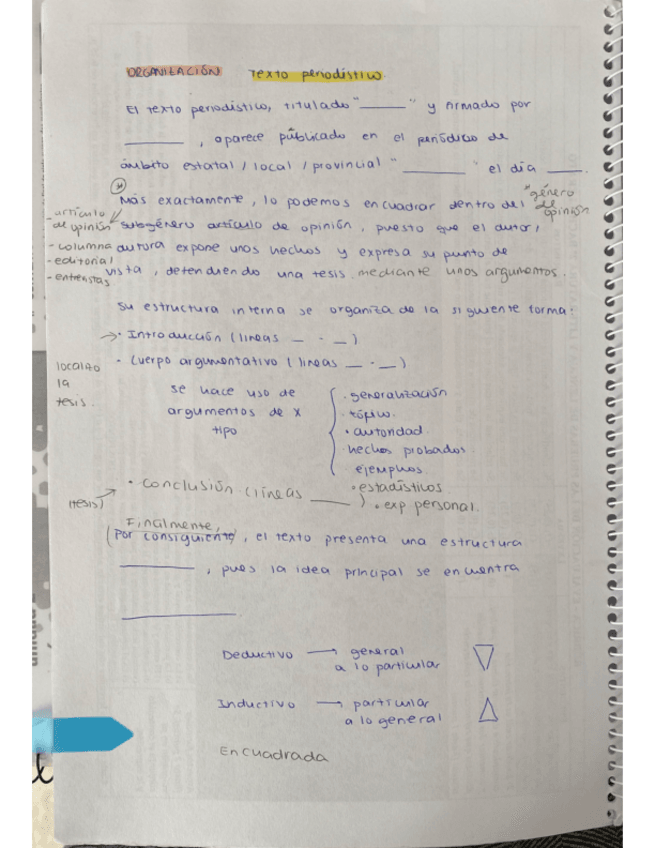 ORGANIZACIÓN texto periodístico.
El texto periodístico, titulado "______" y firmado por
______, aparece públicado en el periódico de
ámbito estatal / local / provincial "______" el día ____.
Más exactamente, lo podemos encuadrar dentro del *género de opinión
- artículo de opinión
- columna
- editorial
- entrevistas
subgénero artículo de opinión, puesto que el autor/
autora expone unos hechos y expresa su punto de
vista, defendiendo una tesis mediante unos argumentos.
Su estructura interna se organiza de la siguiente forma:
→ · Introducción (líneas _ - _)
· Cuerpo argumentativo (líneas _ - _)
localizo
la
tesis.
se hace uso de
argumentos de x
tipo
· generalización
· tópico.
· autoridad
hechos probados
ejemplos.
· estadísticos.
· exp personal.
· conclusión (líneas ____ )
(tesis)
Finalmente,
(Por consiguiente), el texto presenta una estructura
______, pues la idea principal se encuentra
______.
Deductivo → general
a lo particular
Inductivo → particular
a lo general
Encuadrada